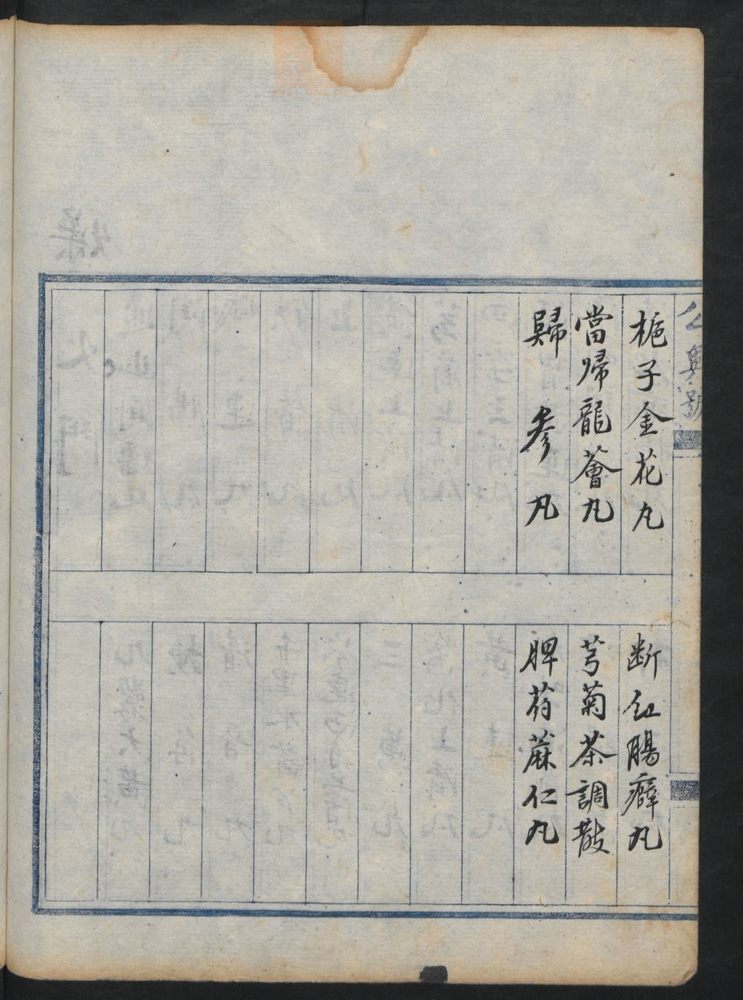 梔子金花丸
當歸龍薈丸
歸參丸
断紅腸癖丸
芎菊茶調散
脾蒋蔴仁丸